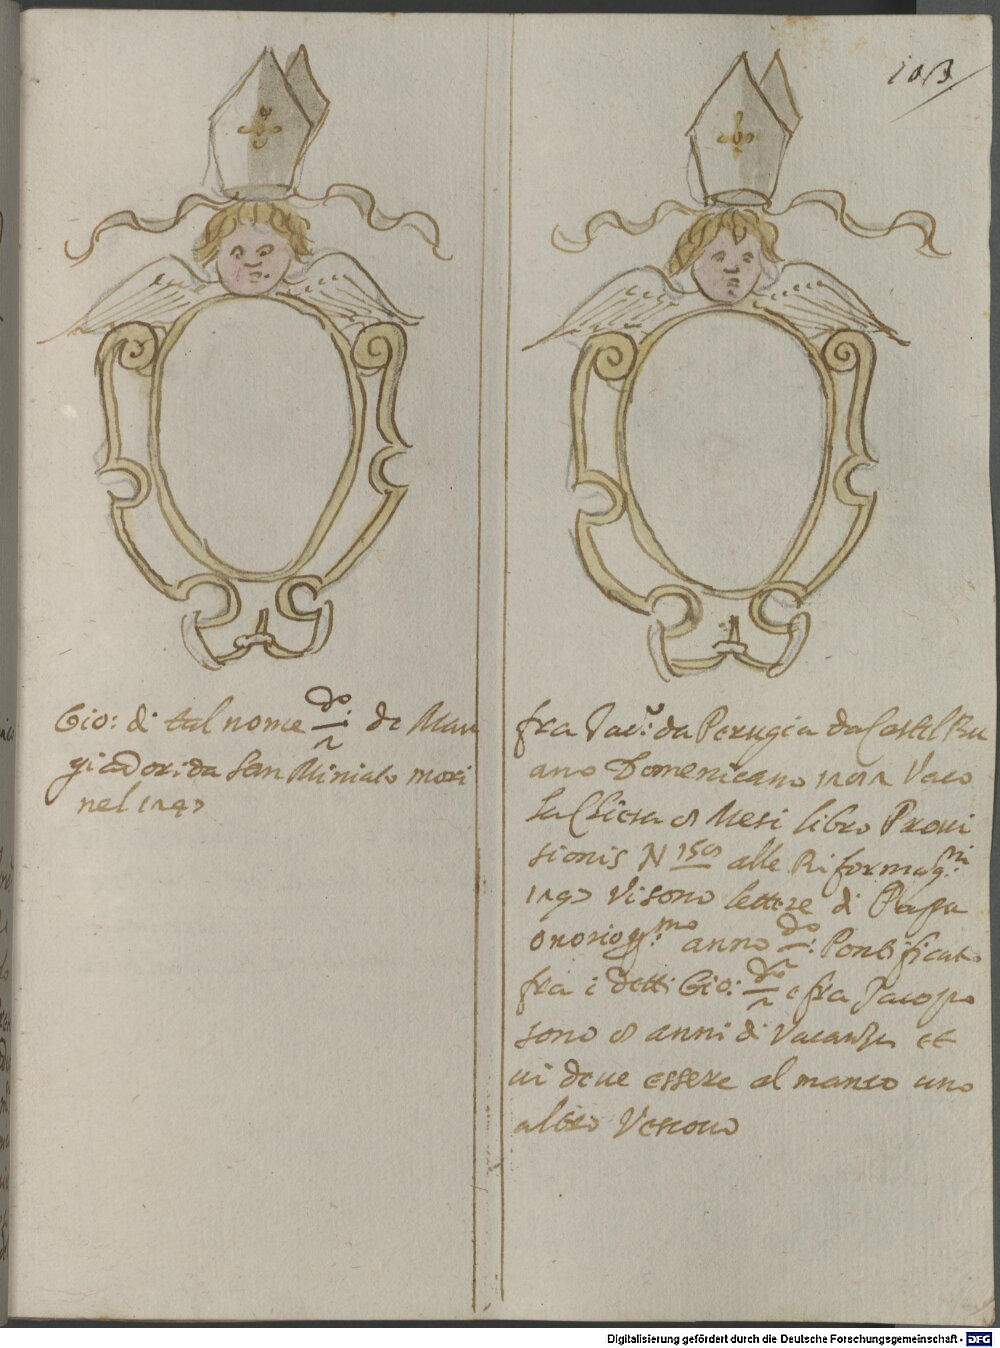 103
Gio: di tal nome 2.do de Man
giadori da San Miniato morì
nel 1247
fra Iac.o da Perugia da Castel Bu
ono Domenicano Vacò
la Chiesa 8 Mesi libro Proui
sionis N alle Riformag.ni
Vi sono lettere di Papa
Onorio anno 2.do: Pontificato
fra i detti Gio: 2.do e fra Iacopo
sono 8 anni di Vacanza et
ui deue essere al manco uno
altro Vescouo
Digitalisierung gefördert durch die Deutsche Forschungsgemeinschaft - DFG